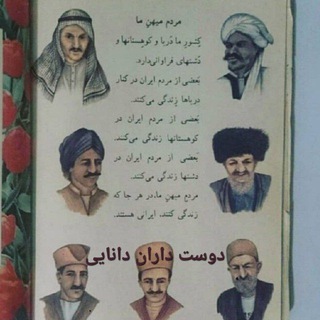 مردم میهن ما
کشور ما دریا و کوهستانها و
دشتهای فراوانی‌دارد.
بعضی از مردم ایران در کنار
دریاها زندگی می‌کنند.
بعضی از مردم ایران در
کوهستانها زندگی می‌کنند.
بعضی از مردم ایران در
دشتها زندگی می‌کنند.
مردم میهن ما،در هر جا که
زندگی کنند، ایرانی هستند.
دوست داران دانایی